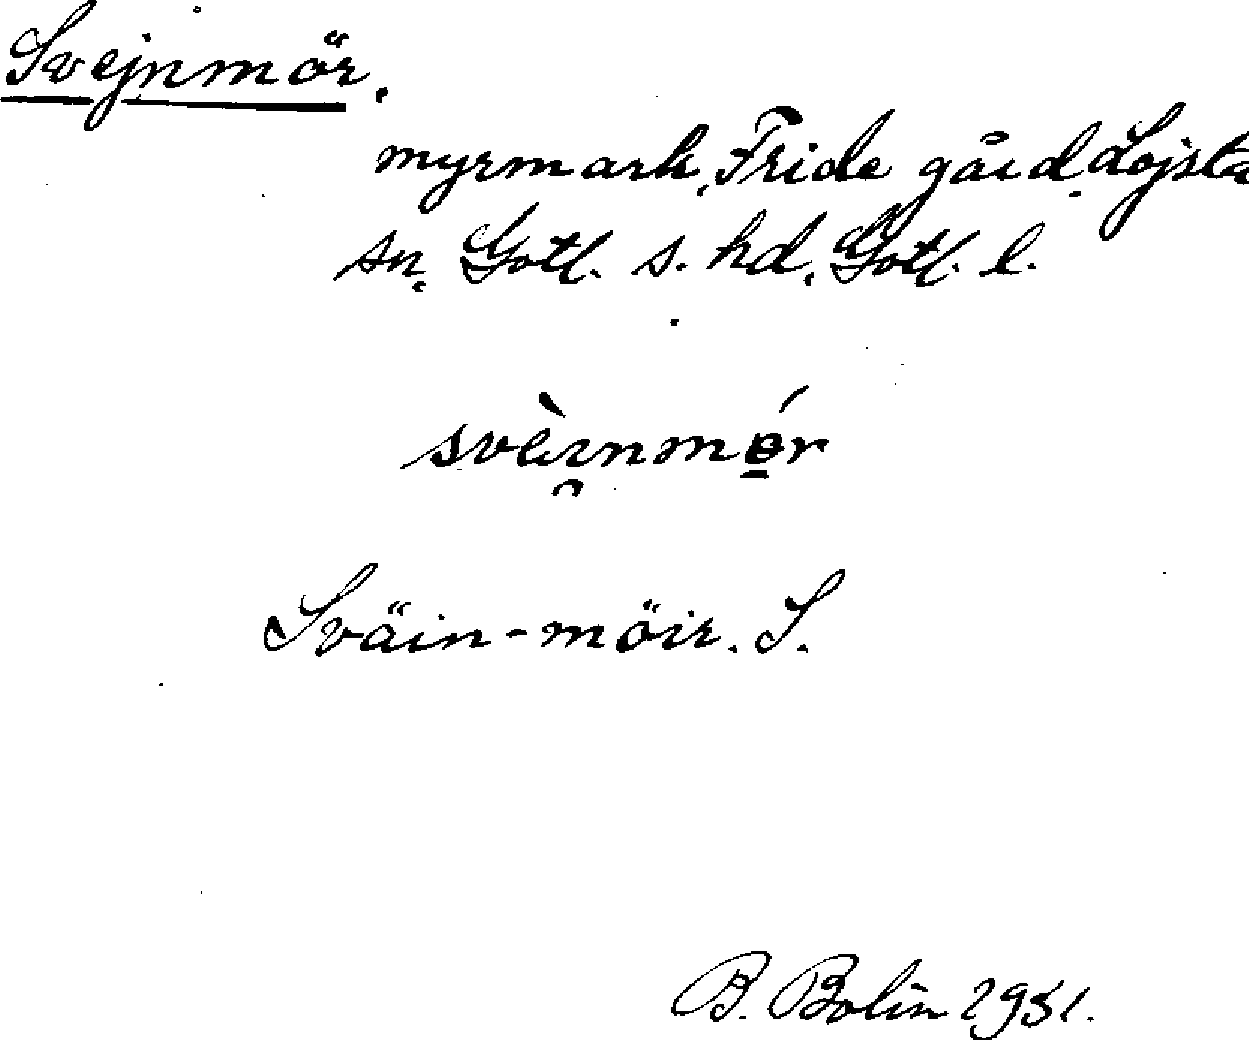 Svejnmör.
myrmark, Fride gård, Lojsta
sn, Gotl. s. hd, Gotl. l.
svèi̯nmө́r
Sväin-möir. S.
B. Bolin 1951.